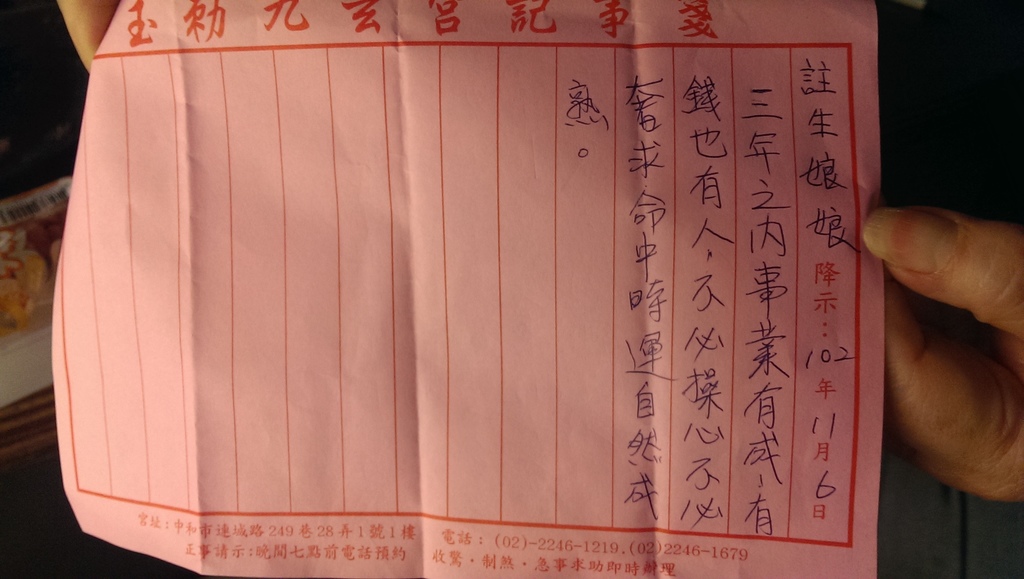 玉勅九玄宮記事箋
註生娘娘降示：102年11月6日
三年之內事業有成，有
錢也有人，不必操心不必
奢求命中時運自然成
熟。
宮址：中和市連城路249巷28弄1號1樓
正事請示：晚間七點前電話預約
電話：(02)-2246-1219.(02)2246-1679
收驚·制煞·急事求助即時辦理